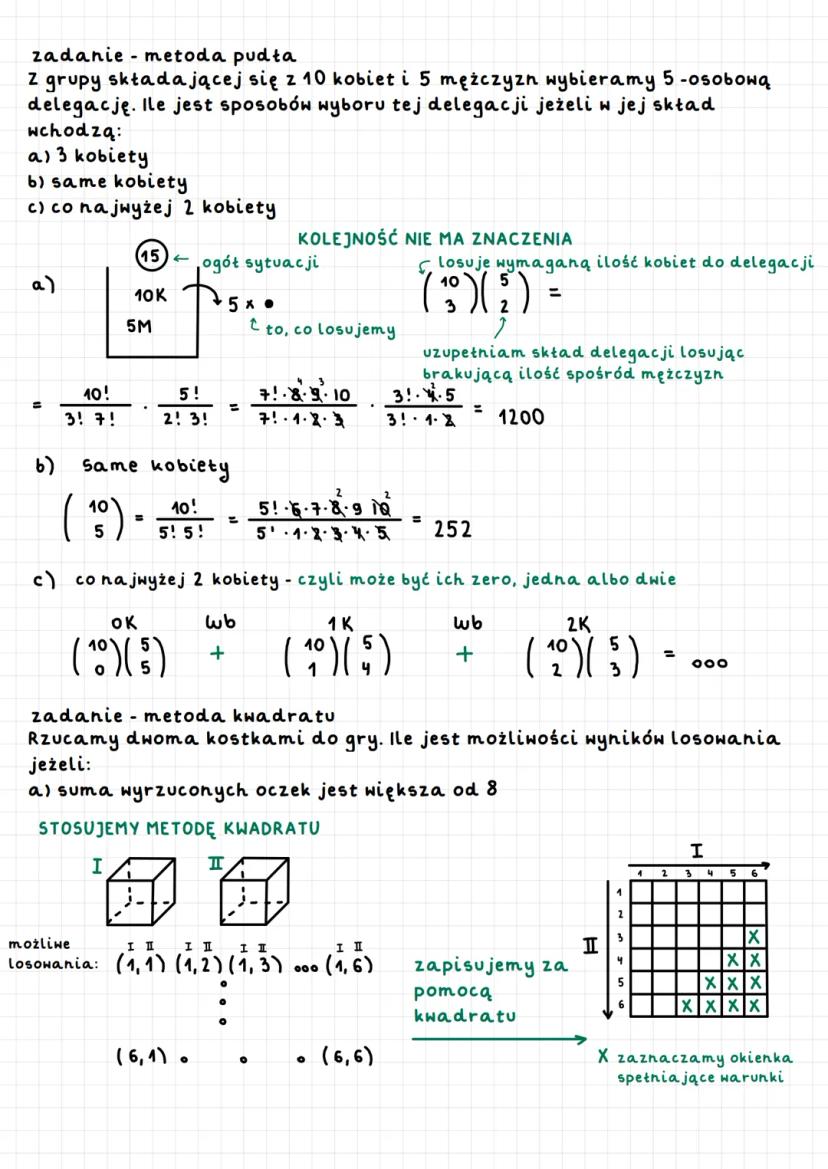 zadanie - metoda pudła
Z grupy składającej się z 10 kobiet i 5 mężczyzn wybieramy 5 -osobową
delegację. Ile jest sposobów wyboru tej delegacji jeżeli w jej skład
wchodzą:
a) 3 kobiety
b) same kobiety
c) co najwyżej 2 kobiety
KOLEJNOŚĆ NIE MA ZNACZENIA
a)
15 ← ogół sytuacji
10K
5M
5 x •
to, co losujemy
losuje wymaganą ilość kobiet do delegacji
(10 3)(5 2) =
uzupełniam skład delegacji losując
brakującą ilość spośród mężczyzn
= 10!/3! 7! · 5!/2! 3! = 7!·8·9·10/7!·1·2·3 · 3!·4·5/3!·1·2 = 1200
4 3 2
b) same kobiety
(10 5) = 10!/5! 5! = 5!·6·7·8·9 10/5'·1·2·3·4·5 = 252
2 2
c) co najwyżej 2 kobiety - czyli może być ich zero, jedna albo dwie
0K wb 1K wb 2K
(10 0)(5 5) + (10 1)(5 4) + (10 2)(5 3) = ...
zadanie - metoda kwadratu
Rzucamy dwoma kostkami do gry. Ile jest możliwości wyników losowania
jeżeli:
a) suma wyrzuconych oczek jest większa od 8
STOSUJEMY METODĘ KWADRATU
I II
możliwe
losowania:
I II I II I II I II
(1,1) (1,2) (1,3) ... (1,6)
(6,1) . . . (6,6)
zapisujemy za
pomocą
kwadratu
I
1 2 3 4 5 6
II
1
2
3 X
4 X X
5 X X X
6 X X X X
X zaznaczamy okienka
spełniające warunki